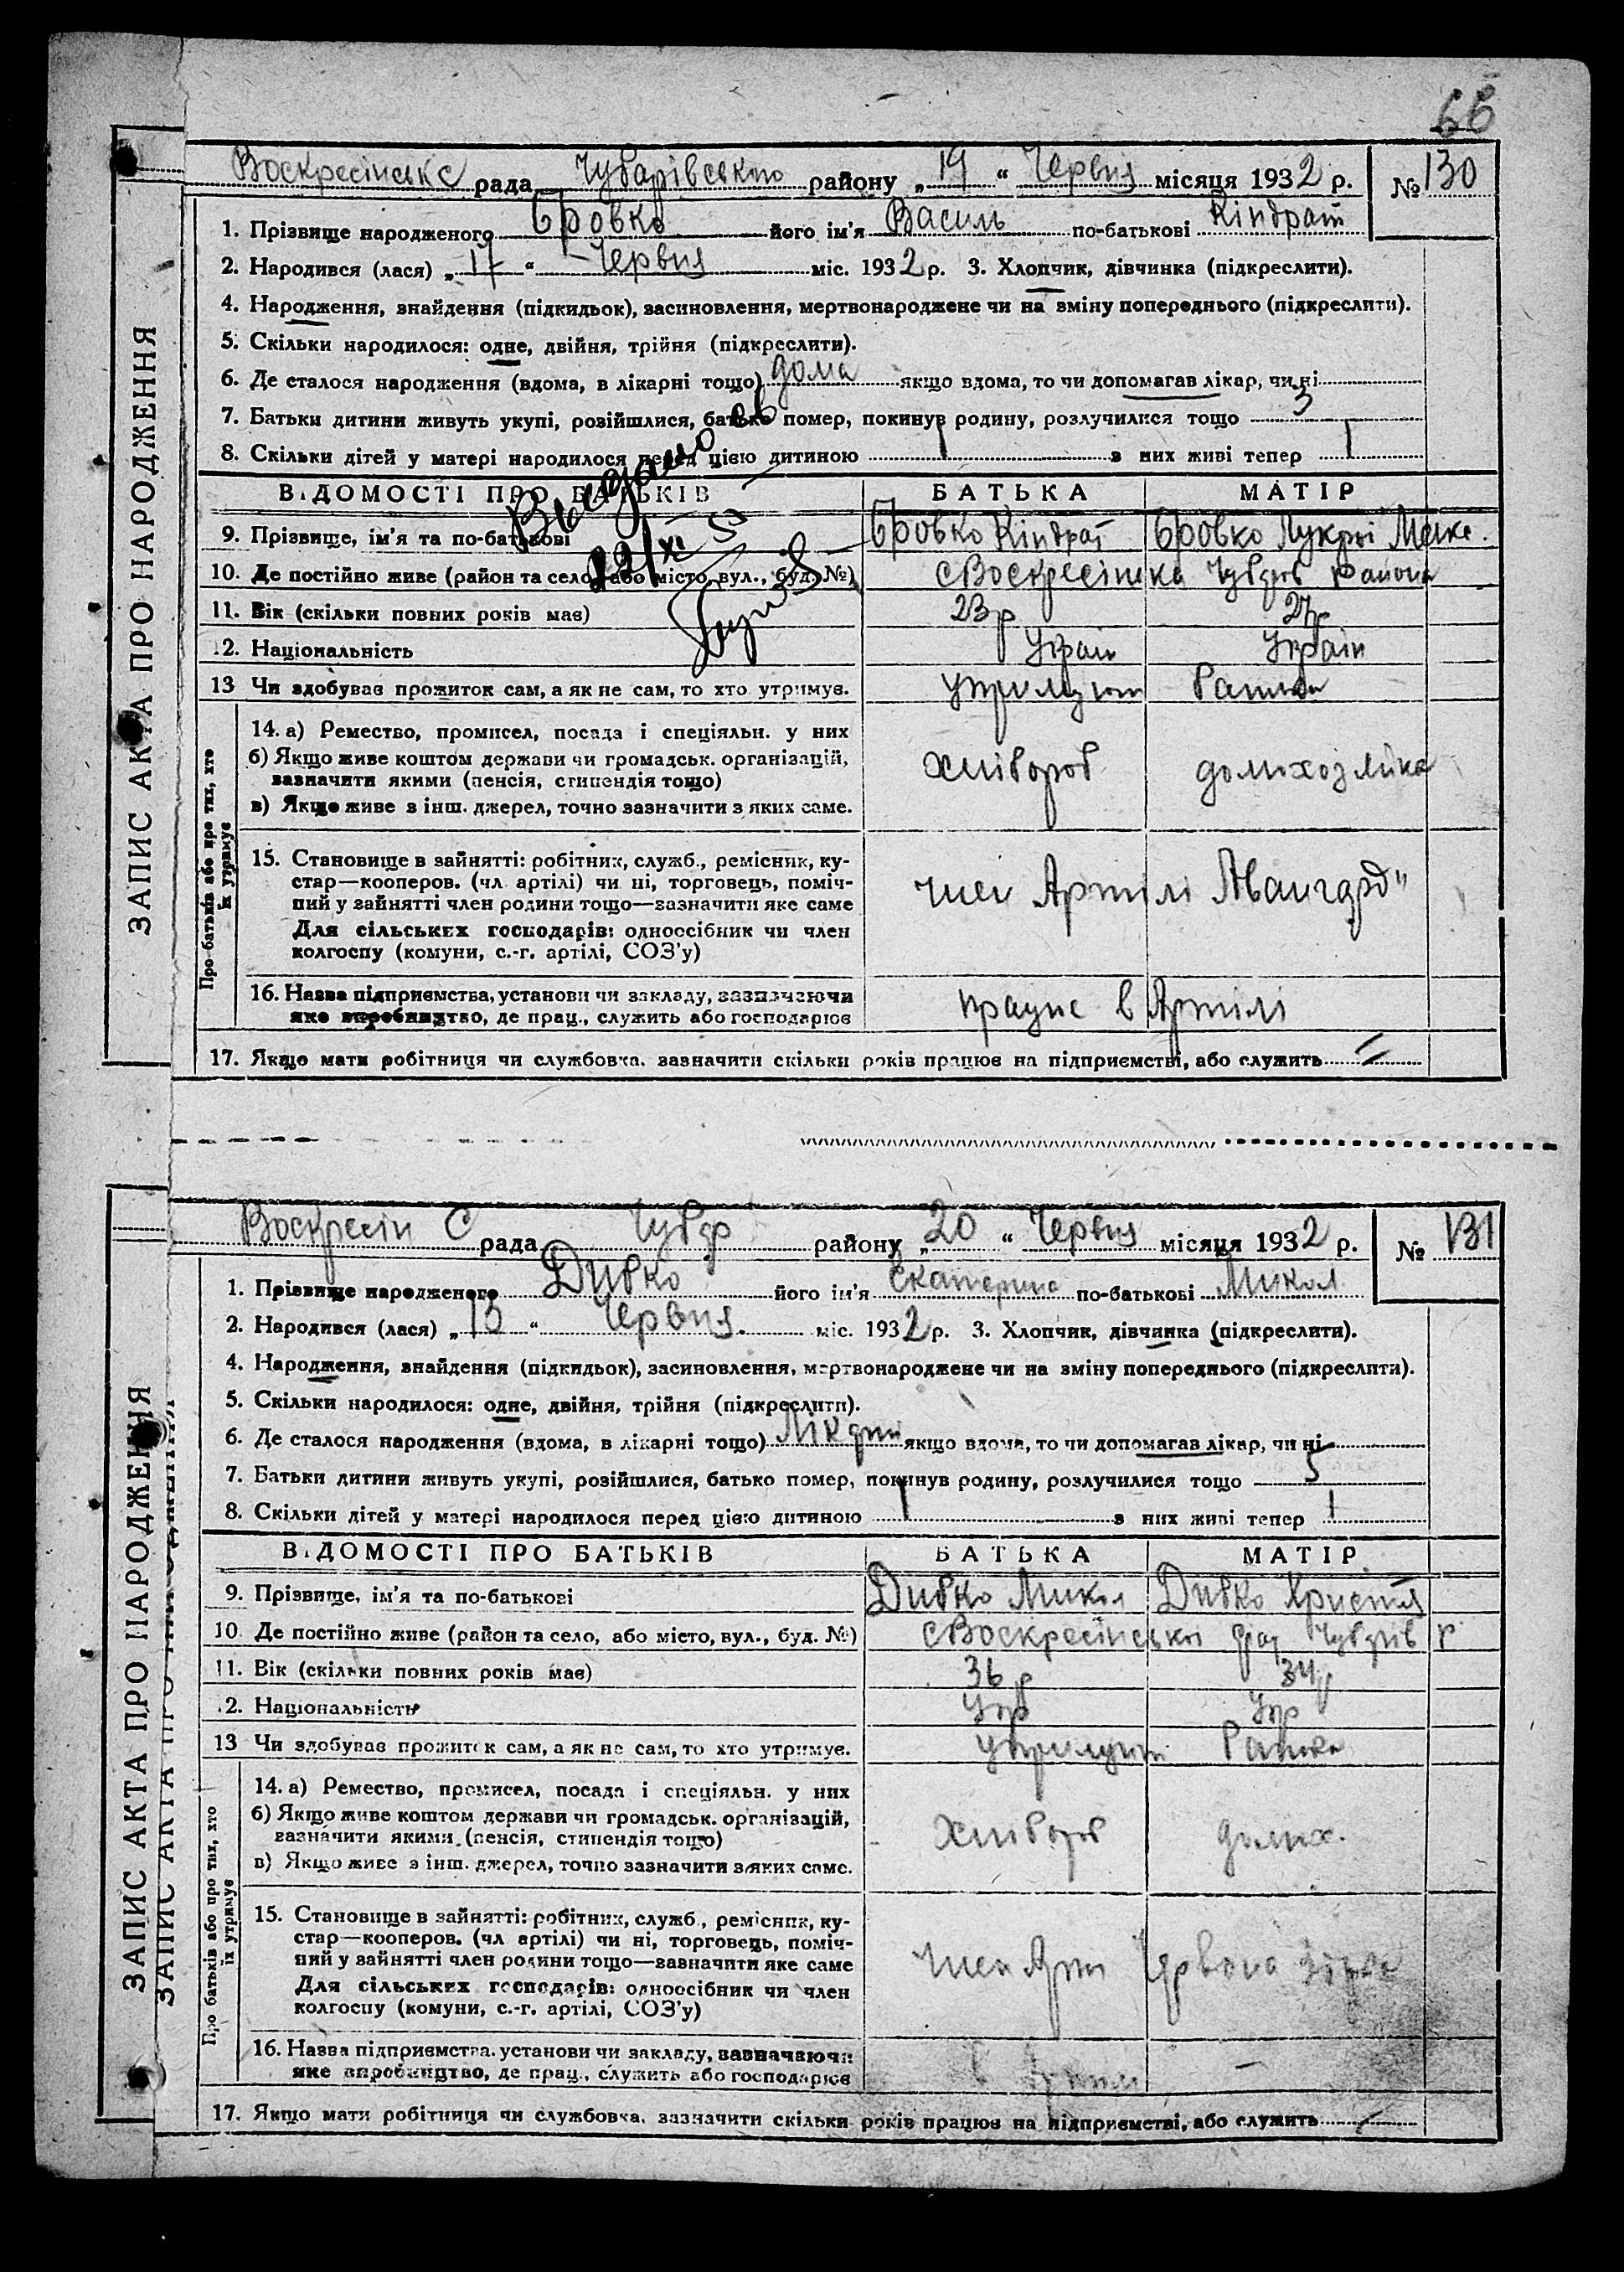 66
Воскресінське рада Чубарівського району „19“ Червня місяця 1932 р. № 130
1. Прізвище народженого Бровко його ім'я Василь по-батькові Кіндрат
2. Народився (лася) „17“ Червня міс. 1932 р. 3. Хлопчик, дівчинка (підкреслити).
4. Народження, знайдення (підкидьок), засиновлення, мертвонароджене чи на зміну попереднього (підкреслити).
5. Скільки народилося: одне, двійня, трійня (підкреслити).
6. Де сталося народження (вдома, в лікарні тощо) дома якщо вдома, то чи допомагав лікар, чи ні
7. Батьки дитини живуть укупі, розійшлися, батько помер, покинув родину, розлучилися тощо 3
8. Скільки дітей у матері народилося перед цією дитиною 1 з них живі тепер 1
ВІДОМОСТІ ПРО БАТЬКІВ БАТЬКА МАТІР
Выдано св
22/XI
9. Прізвище, ім'я та по-батькові Бровко Кіндрат Бровко Лукрі Маке.
10. Де постійно живе (район та село, або місто, вул., буд. №) с Воскресінска Чубарів района
11. Вік (скільки повних років має) 23р 27р
12. Національність Украін Украін
13 Чи здобував прожиток сам, а як не сам, то хто утримує. утримують
14. а) Ремество, промисел, посада і спеціяльн. у них
б) Якщо живе коштом держави чи громадськ. організацій, зазначити якими (пенсія, стипендія тощо) хлібороб домохозяйка
в) Якщо живе з інш. джерел, точно зазначити з яких саме.
Про батьків або про тих, хто їх утримує
15. Становище в зайнятті: робітник, служб., ремісник, ку-
стар—кооперов. (чл. артілі) чи ні, торговець, поміч- член Артілі Авангард"
ний у зайнятті член родини тощо—зазначити яке саме
Для сільських господарів: одноосібник чи член
колгоспу (комуни, с.-г. артілі, СОЗ'у)
16. Назва підприємства, установи чи закладу, зазначаючи
яке виробництво, де прац., служить або господарює працює в Артілі
17. Якщо мати робітниця чи службовка, зазначити скільки років працює на підприємстві, або служить
ЗАПИС АКТА ПРО НАРОДЖЕННЯ
Воскресін С рада Чубар району „20“ Червня місяця 1932 р. № 131
1. Прізвище народженого Дибко його ім'я Екатерина по-батькові Микол
2. Народився (лася) „13“ Червня. міс. 1932 р. 3. Хлопчик, дівчинка (підкреслити).
4. Народження, знайдення (підкидьок), засиновлення, мертвонароджене чи на зміну попереднього (підкреслити).
5. Скільки народилося: одне, двійня, трійня (підкреслити).
6. Де сталося народження (вдома, в лікарні тощо) якщо вдома, то чи допомагав лікар, чи ні
7. Батьки дитини живуть укупі, розійшлися, батько помер, покинув родину, розлучилися тощо 5
8. Скільки дітей у матері народилося перед цією дитиною 1 з них живі тепер 1
ВІДОМОСТІ ПРО БАТЬКІВ БАТЬКА МАТІР
9. Прізвище, ім'я та по-батькові Дибко Микол Дибко Христя
10. Де постійно живе (район та село, або місто, вул., буд. №) с Воскресінської Чубарів р
11. Вік (скільки повних років має) 36р 34р
12. Національність Укр Укр
13 Чи здобував прожиток сам, а як не сам, то хто утримує. утримують
14. а) Ремество, промисел, посада і спеціяльн. у них
б) Якщо живе коштом держави чи громадськ. організацій, зазначити якими (пенсія, стипендія тощо) хлібороб домох.
в) Якщо живе з інш. джерел, точно зазначити з яких саме.
Про батьків або про тих, хто їх утримує
15. Становище в зайнятті: робітник, служб., ремісник, ку-
стар—кооперов. (чл артілі) чи ні, торговець, поміч-
ний у зайнятті член родини тощо—зазначити яке саме член Арт Червона зірка
Для сільських господарів: одноосібник чи член
колгоспу (комуни, с.-г. артілі, СОЗ'у)
16. Назва підприємства, установи чи закладу, зазначаючи
яке виробництво, де прац., служить або господарює
17. Якщо мати робітниця чи службовка, зазначити скільки років працює на підприємстві, або служить
ЗАПИС АКТА ПРО НАРОДЖЕННЯ